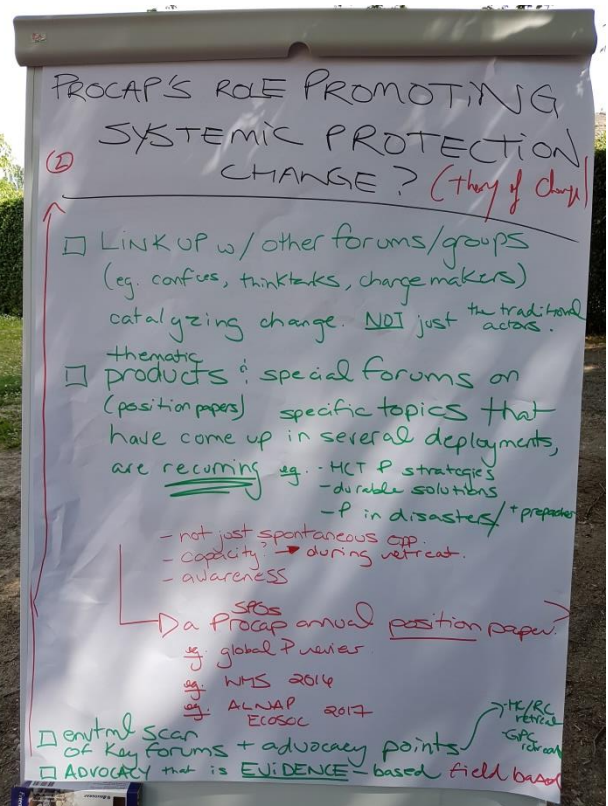 PROCAP'S ROLE PROMOTING
SYSTEMIC PROTECTION
CHANGE? (theory of change)
☐ LINK UP w/ other forums/groups
(eg. confces, thinktanks, change makers)
catalyzing change. NOT just the traditional actors.
☐ thematic products & special forums on
(position papers) specific topics that
have come up in several deployments,
are recurring eg. - HCT P strategies
- durable solutions
- P in disasters/ +
- not just spontaneous opp.
- capacity? → during retreat.
- awareness
SPOs
a Procap annual position paper?
eg. global P review
eg. WHS 2016
eg. ALNAP 2017
ECOSOC
☐ envtml scan
of key forums + advocacy points
HC/RC
retreat
GPC
retreat
☐ ADVOCACY that is EVIDENCE-based field based